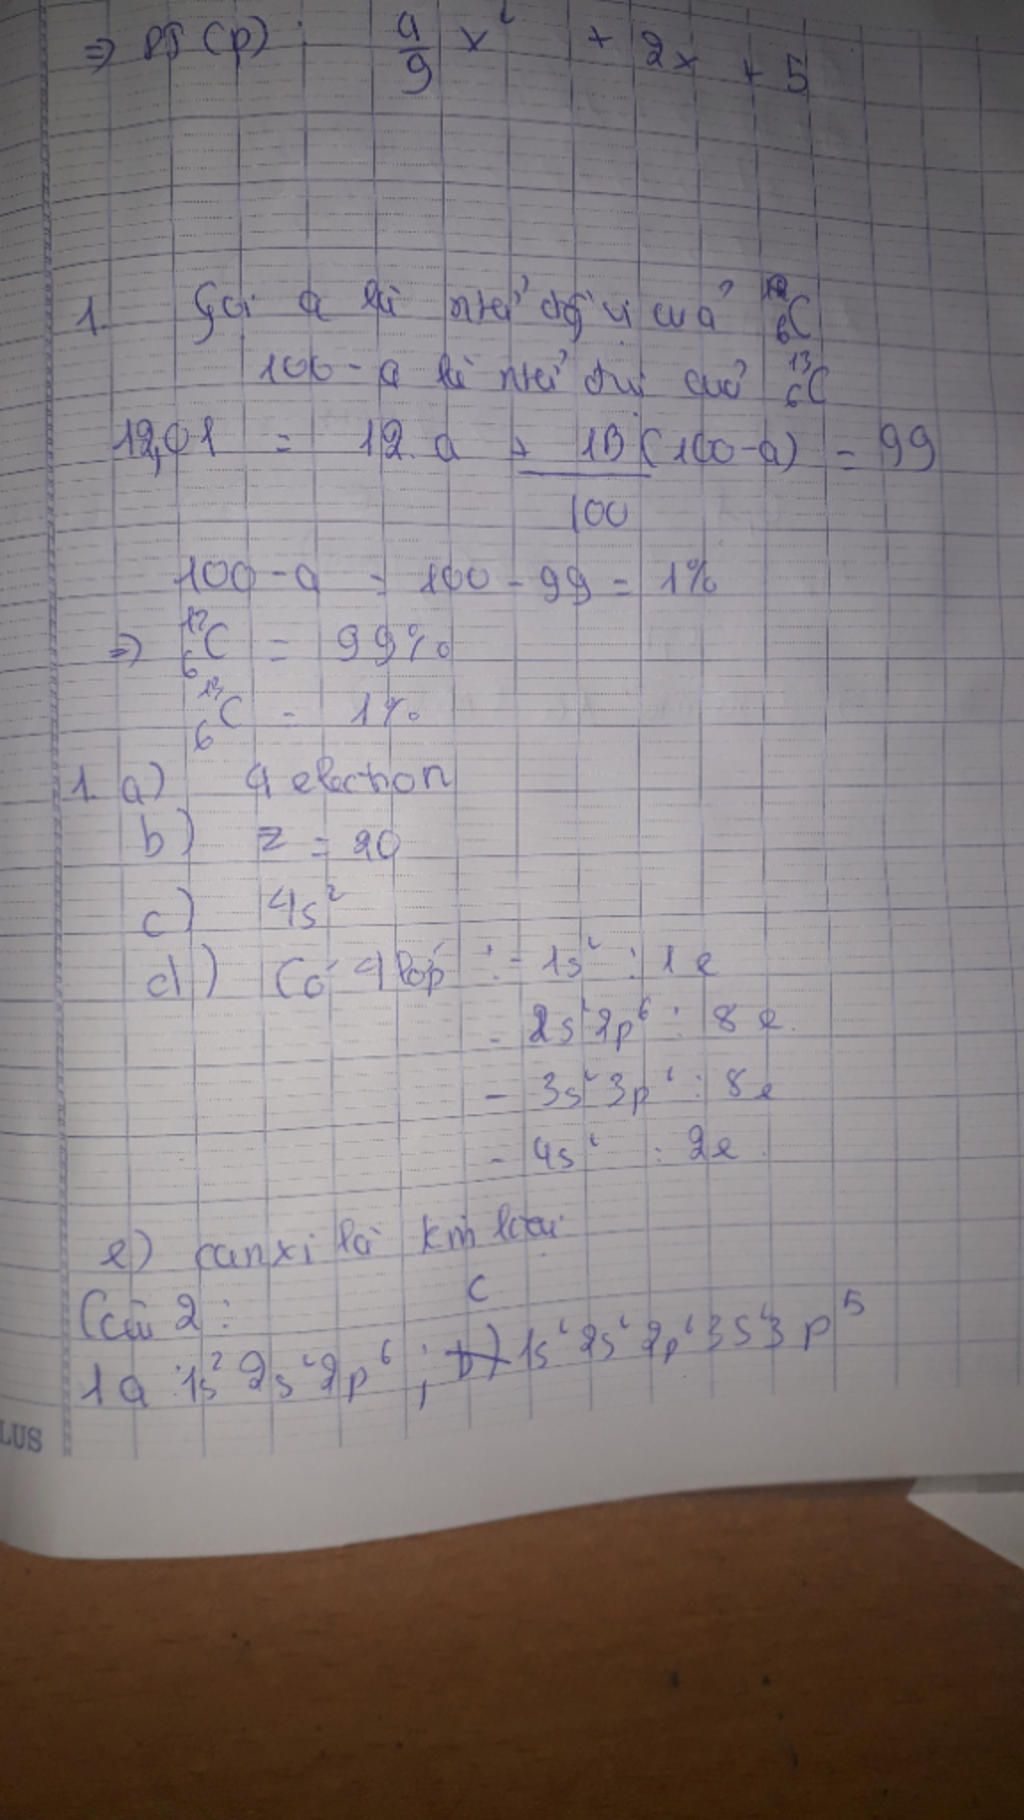 => PT (P) : 9/9 x² + 2x + 5
1. Gọi a là % đồng vị của ¹²₆C
100 - a là % đvị của ¹³₆C
12,01 = 12.a + 13(100-a) / 100 = 99
100 - a = 100 - 99 = 1%
=> ¹²₆C = 99%
¹³₆C = 1%
1. a) 4 electron
b) Z = 20
c) 4s²
d) Có 4 lớp : - 1s² : 1e
- 2s²2p⁶ : 8e.
- 3s²3p⁶ : 8e
- 4s² : 2e.
e) canxi là kim loại
Câu 2: c
1a 1s² 2s² 2p⁶ ; 1s² 2s² 2p⁶ 3s² 3p⁵
LUS